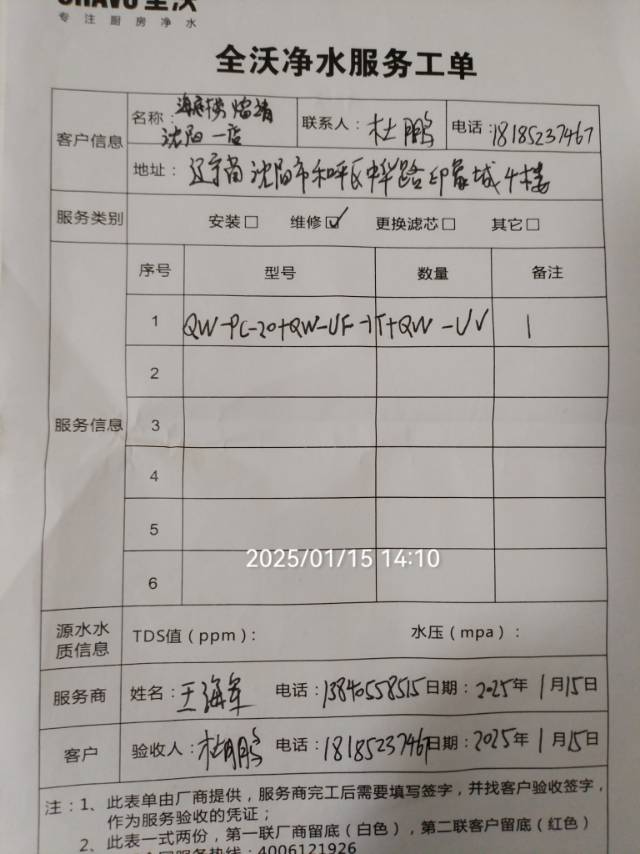 CHAVO 全沃
专注厨房净水
全沃净水服务工单
客户信息
名称：
沈阳一店
联系人：杜鹏
电话：18185237467
地址：辽宁省沈阳市和平区中华路印象城4楼
服务类别 安装□ 维修☑ 更换滤芯□ 其它□
服务信息
序号 型号 数量 备注
1 QW-PC-20+QW-UF-1T+QW-UV 1
2
3
4
5
6
2025/01/15 14:10
源水水质信息 TDS值（ppm）： 水压（mpa）：
服务商 姓名：王海军 电话：13840558515 日期：2025年1月15日
客户 验收人：杜鹏 电话：18185237467 日期：2025年1月15日
注：1、此表单由厂商提供，服务商完工后需要填写签字，并找客户验收签字，
作为服务验收的凭证；
2、此表一式两份，第一联厂商留底（白色），第二联客户留底（红色）
服务热线：4006121926